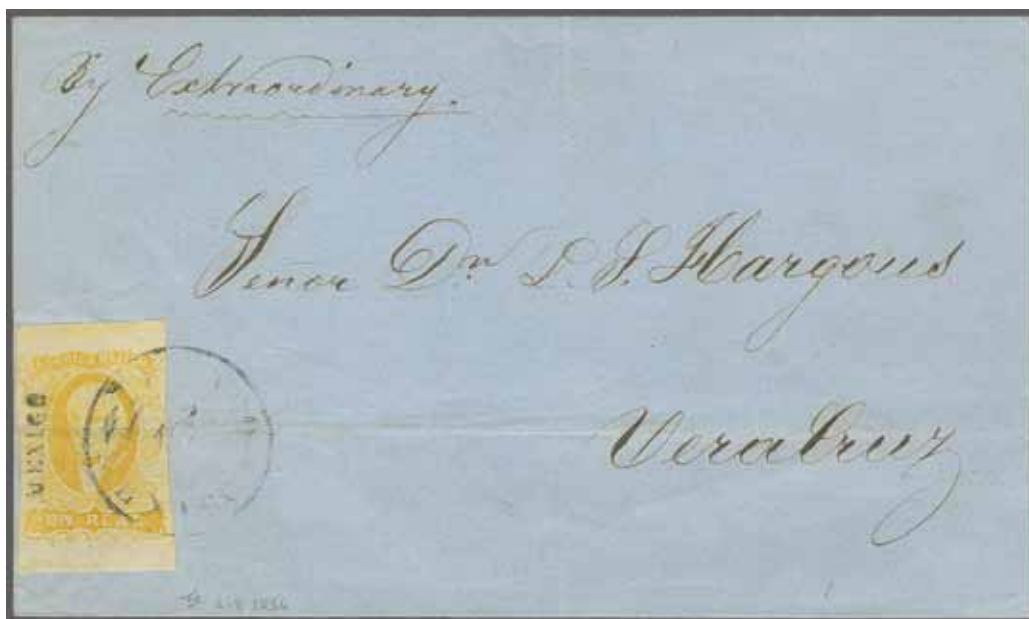 By Extraordinary.
Senor Dn L. S. Hargous
Vera Cruz
MEXICO
UN REAL